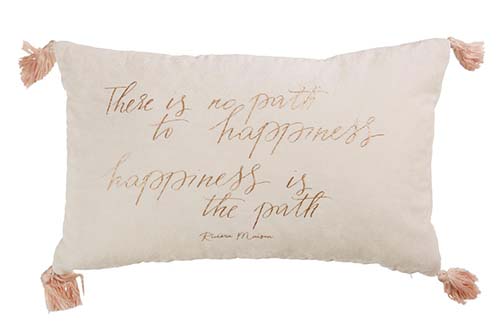 There is no path
to happiness
happiness is
the path
Rivièra Maison